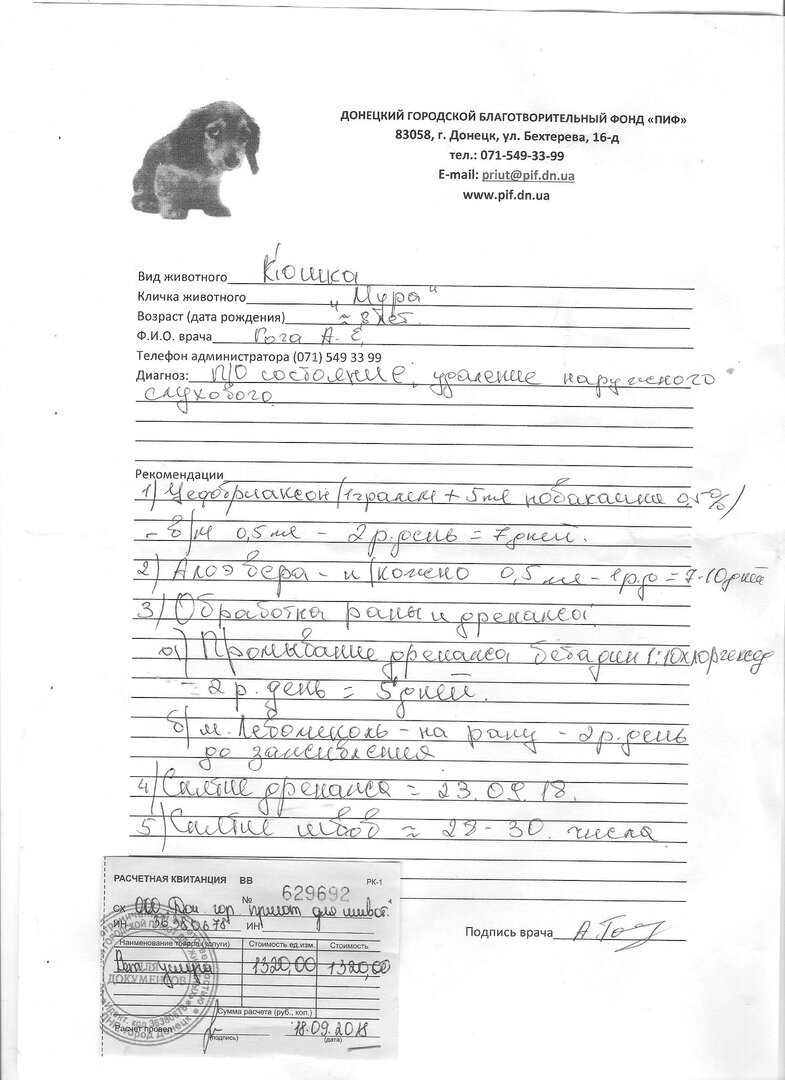 ДОНЕЦКИЙ ГОРОДСКОЙ БЛАГОТВОРИТЕЛЬНЫЙ ФОНД «ПИФ»
83058, г. Донецк, ул. Бехтерева, 16-д
тел.: 071-549-33-99
E-mail: priut@pif.dn.ua
www.pif.dn.ua
Вид животного Кошка
Кличка животного "Мура"
Возраст (дата рождения) ≈ 8 лет.
Ф.И.О. врача Гога А. Е.
Телефон администратора (071) 549 33 99
Диагноз: П/О состояние, удаление наружного
слухового
Рекомендации
1) Цефтриаксон (1грамм + 5мл новокаина 0,5%)
- в/м 0,5 мл - 2 р. день = 7 дней.
2) Алоэ вера - п/кожно 0,5 мл - 1 р/д = 7-10 дней
3) Обработка раны и дренажа:
а) Промывание дренажа бетадин 1:10 хлоргексид
- 2 р. день = 5 дней.
б) м. Левомеколь - на рану - 2 р. день
до заживления
4) Снятие дренажа = 23.09.18.
5) Снятие швов ≈ 28-30. числа
РАСЧЕТНАЯ КВИТАНЦИЯ ВВ РК-1
№ 629692
СХ ООО Дон. гор. приют для живот.
ИН 36380678 ИН
Наименование товара (услуги) Стоимость ед.изм. Стоимость
Вет услуга 1320,00 1320,00
ДЛЯ ДОКУМЕНТОВ
Сумма расчета (руб., коп.)
Расчет провел 18.09.2018
(подпись) (дата)
Подпись врача